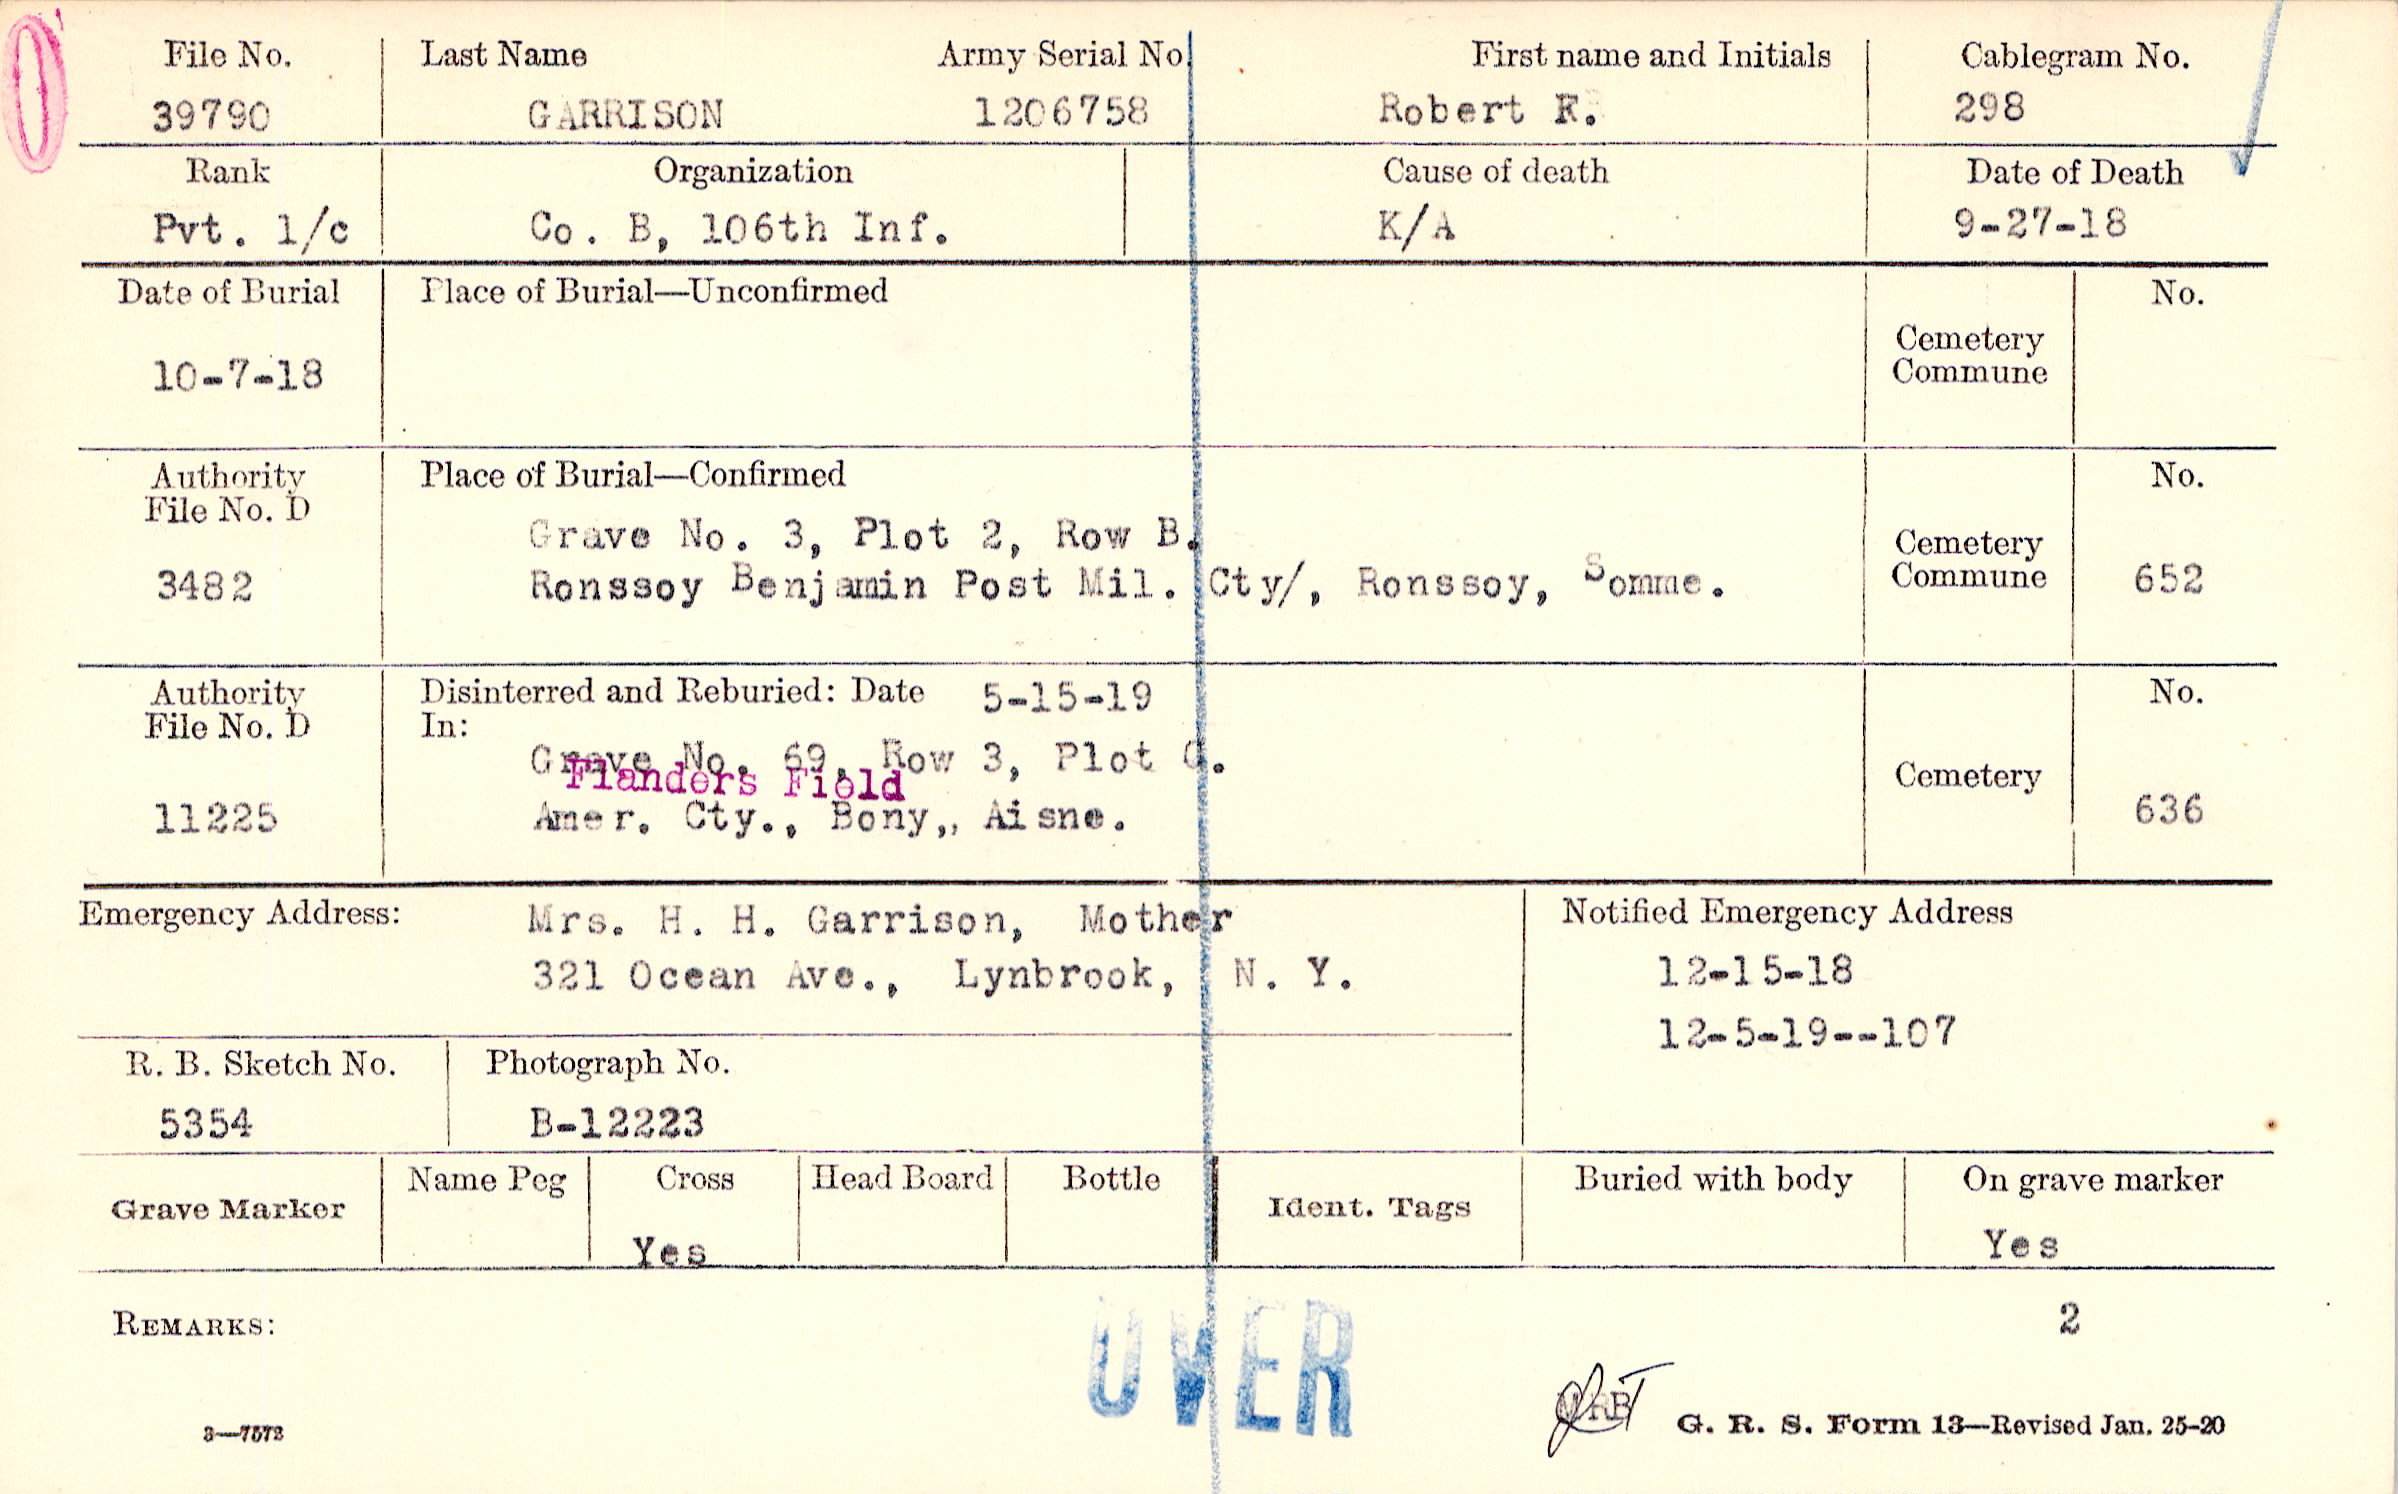 File No. Last Name Army Serial No. First name and Initials Cablegram No.
39790 GARRISON 1206758 Robert F. 298
Rank Organization Cause of death Date of Death
Pvt. 1/c Co. B, 106th Inf. K/A 9-27-18
Date of Burial Place of Burial—Unconfirmed No.
Cemetery
Commune
10-7-18
Authority Place of Burial—Confirmed No.
File No. D
Grave No. 3, Plot 2, Row B.
Cemetery
3482 Ronssoy Benjamin Post Mil. Cty/, Ronssoy, Somme. Commune 652
Authority Disinterred and Reburied: Date 5-15-19 No.
File No. D In:
Grave No. 69, Row 3, Plot
Flanders Field Cemetery
11225 Amer. Cty., Bony,, Aisne. 636
Emergency Address: Mrs. H. H. Garrison, Mother Notified Emergency Address
321 Ocean Ave., Lynbrook, N. Y. 12-15-18
12-5-19--107
R. B. Sketch No. Photograph No.
5354 B-12223
Grave Marker Name Peg Cross Head Board Bottle Ident. Tags Buried with body On grave marker
Yes Yes
REMARKS: 2
OVER
3—7573 G. R. S. Form 13—Revised Jan. 25-20